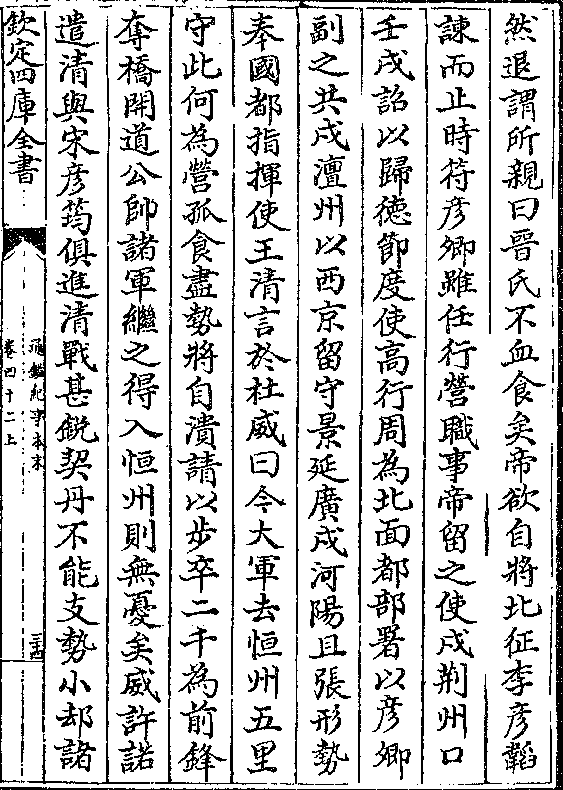 然退謂所親曰晉氏不血食矣帝欲自將北征李彦韜
諫而止時符彦卿雖任行營職事帝留之使戍荆州口
壬戌詔以歸徳節度使高行周為北面都部署以彦卿
副之共戍澶州以西京留守景延廣戍河陽且張形勢
奉國都指揮使王清言於杜威曰今大軍去恒州五里
守此何為營孤食盡勢將自潰請以步卒二千為前鋒
奪橋開道公帥諸軍繼之得入恒州則無憂矣威許諾
遣清與宋彦筠俱進清戰甚鋭契丹不能支勢小却諸
欽定四庫全書
通鑑紀事本末
卷四十二上
三四